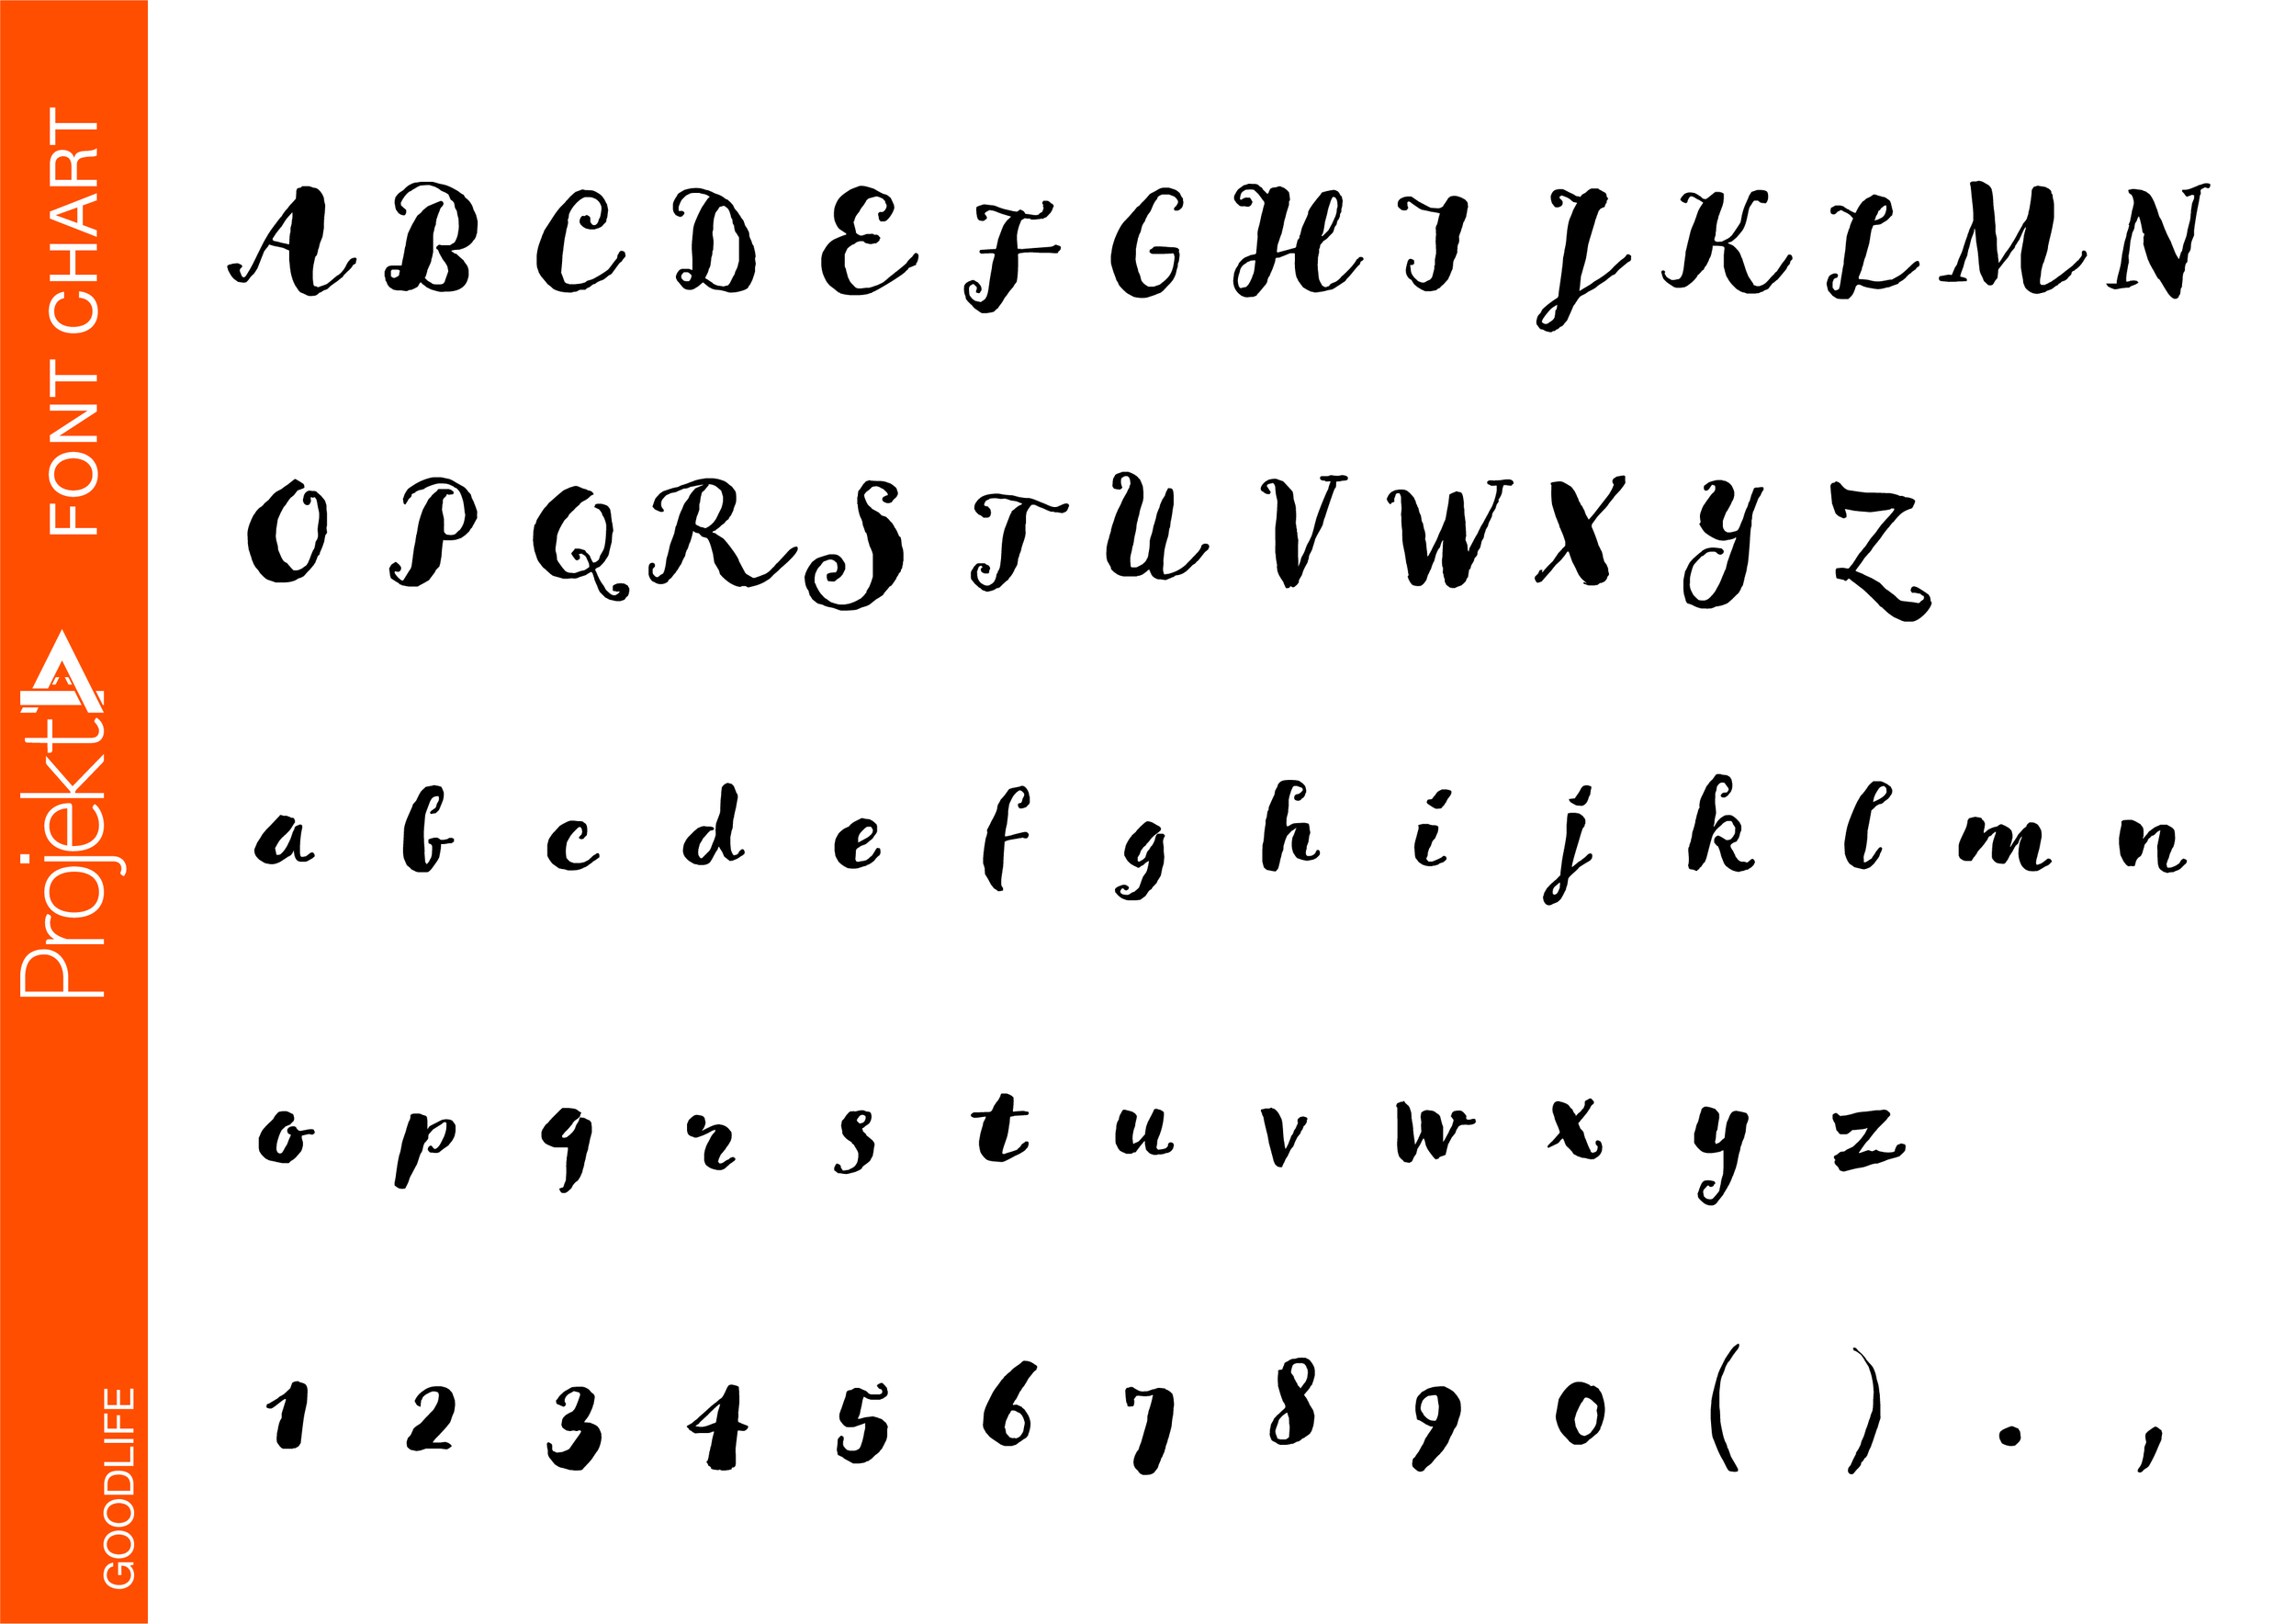 FONT CHART
Projekt
GOODLIFE
A B C D E F G H I J K L M N
O P Q R S T U V W X Y Z
a b c d e f g h i j k l m n
o p q r s t u v w x y z
1 2 3 4 5 6 7 8 9 0 ( ) . ,